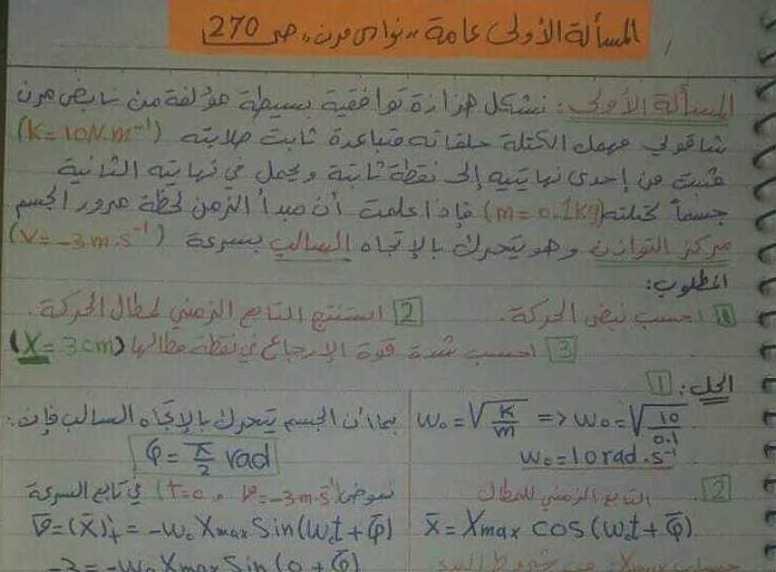 المسألة الأولى عامة "نواس مرن" ص 270
المسألة الأولى: نشكل هزازة توافقية بسيطة مؤلفة من نابض مرن
شاقولي مهمل الكتلة حلقاته متباعدة ثابت صلابته (K=10N.m⁻¹)
مثبت من إحدى نهايتيه إلى نقطة ثابتة ويحمل في نهايته الثانية
جسماً كتلته (m=0.1Kg) فإذا علمت أن مبدأ الزمن لحظة مرور الجسم
مركز التوازن وهو يتحرك بالإتجاه السالب بسرعة (V=-3m.s⁻¹)
المطلوب:
1 احسب نبض الحركة. 2 استنتج التابع الزمني لمطال الحركة.
3 احسب شدة قوة الإرجاع في نقطة مطالها (X=3cm)
الحل: 1
ω₀=√(K/m) => ω₀=√(10/0.1)
ω₀=10rad.s⁻¹
2 التابع الزمني للمطال
X̄=Xmax cos(ω₀t+φ̄)
حساب Xmax من شروط البدء
بما أن الجسم يتحرك بالإتجاه السالب فإن:
φ=π/2 rad
نعوض (t=0 و v=-3m.s⁻¹) في تابع السرعة
v̄=(x̄)'t=-ω₀Xmax Sin(ω₀t+φ̄)
-3=-ω₀Xmax Sin(0+φ̄)